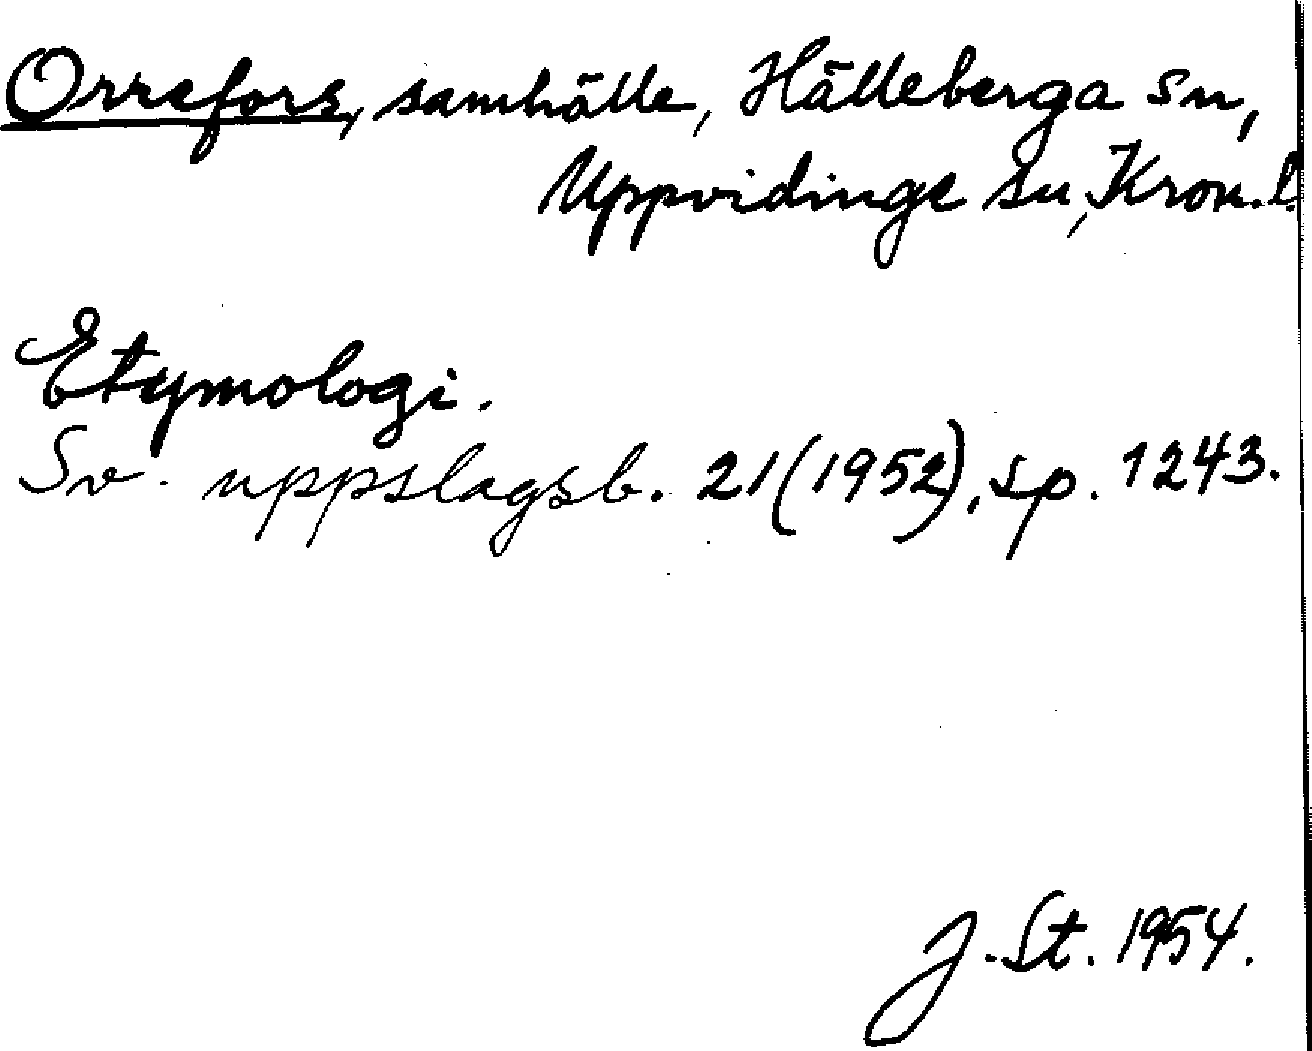 Orrefors, samhälle, Hälleberga sn,
Uppvidinge sn, Kron. l.
Etymologi.
Sv. uppslagsb. 21 (1952), sp. 1243.
J. St. 1954.